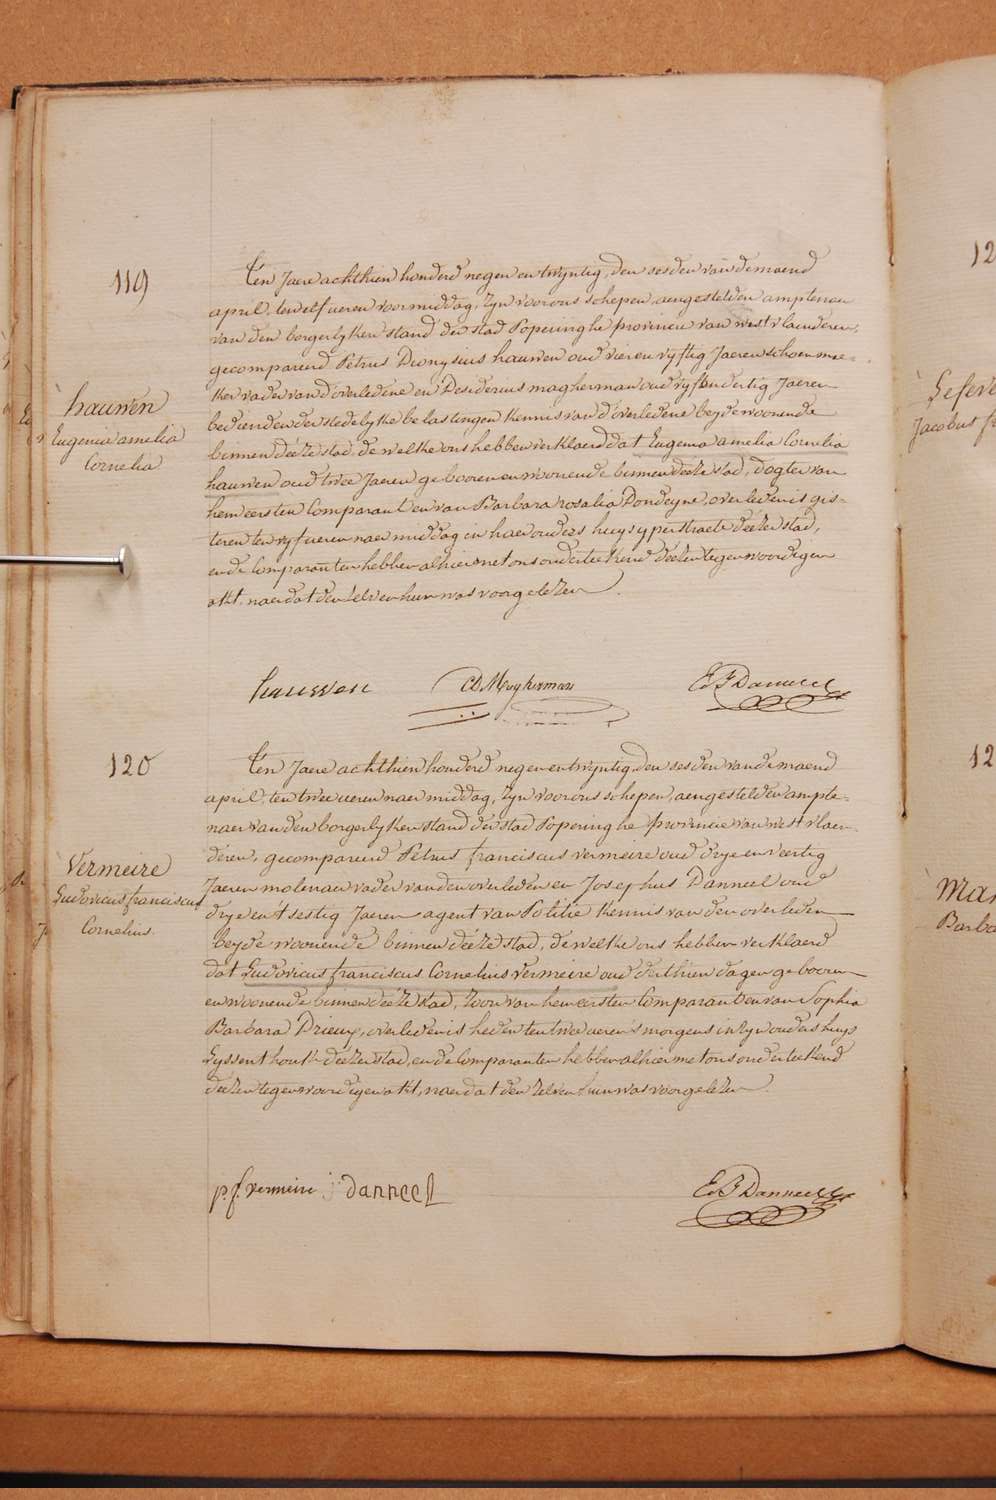 119
hauwen
Eugenia amelia
Cornelia
Ten Jaere achthien honderd negen en twyntig, den sesden van de maend
april, ten elf ueren voormiddag, zyn voor ons schepen, aengestelden amptenaer
van den borgerlyken stand der stad Poperinghe provincie van westvlaenderen,
gecompareerd Petrus Dionysius hauwen oud vier en vyftig Jaeren schoenmae=
ker vader van d'overledene en Desiderius magherman oud vyf en dertig Jaeren
bediend en der stedelyke belastingen kennis van d'overledene beyde woonende
binnen deéze stad, de welke ons hebben verklaerd dat Eugenia amelia Cornelia
hauwen oud twee Jaeren gebooren en woonende binnen deéze stad, dogter van
hem eersten Comparant en van Barbara rosalia Dondeyne, overleden is gis=
teren ten vyf ueren naermiddag in haer ouders huys yperstraete deézer stad,
en de Comparanten hebben alhier met ons onderteekend deézen tegenwoordigen
akt, naer dat den zelven hun was voorgelezen.
hauwen
CD Magherman
E F Danneel
120
Vermeire
Ludovicus franciscus
Cornelius.
Ten Jaere achthien honderd negen en twyntig, den sesden van de maend
april, ten twee ueren naermiddag, zyn voor ons schepen, aengestelden ampte=
naer van den borgerlyken stand der stad Poperinghe provincie van westvlaen=
deren, gecompareerd Petrus franciscus vermeire oud drye en veertig
Jaeren molenaer vader van den overleden en Josephus Danneel oud
drye en t'sestig Jaeren agent van Politie kennis van den overleden
beyde woonende binnen deéze stad, de welke ons hebben verklaerd
dat Ludovicus franciscus Cornelius vermeire oud derthien dagen gebooren
en woonende binnen deéze stad, zoon van hem eersten Comparant en van Sophia
Barbara Drieux, overleden is heden ten twee ueren 's morgens in zyn ouders huys
Eyssenthoutk deézer stad, en de Comparanten hebben alhier met ons onderteekend
deézen tegenwoordigen akt, naer dat den zelven hun was voorgelezen.
p. f. vermeire
j: danneel
E F Danneel
12
Lefeve
Jacobus f
12
Man
Barba